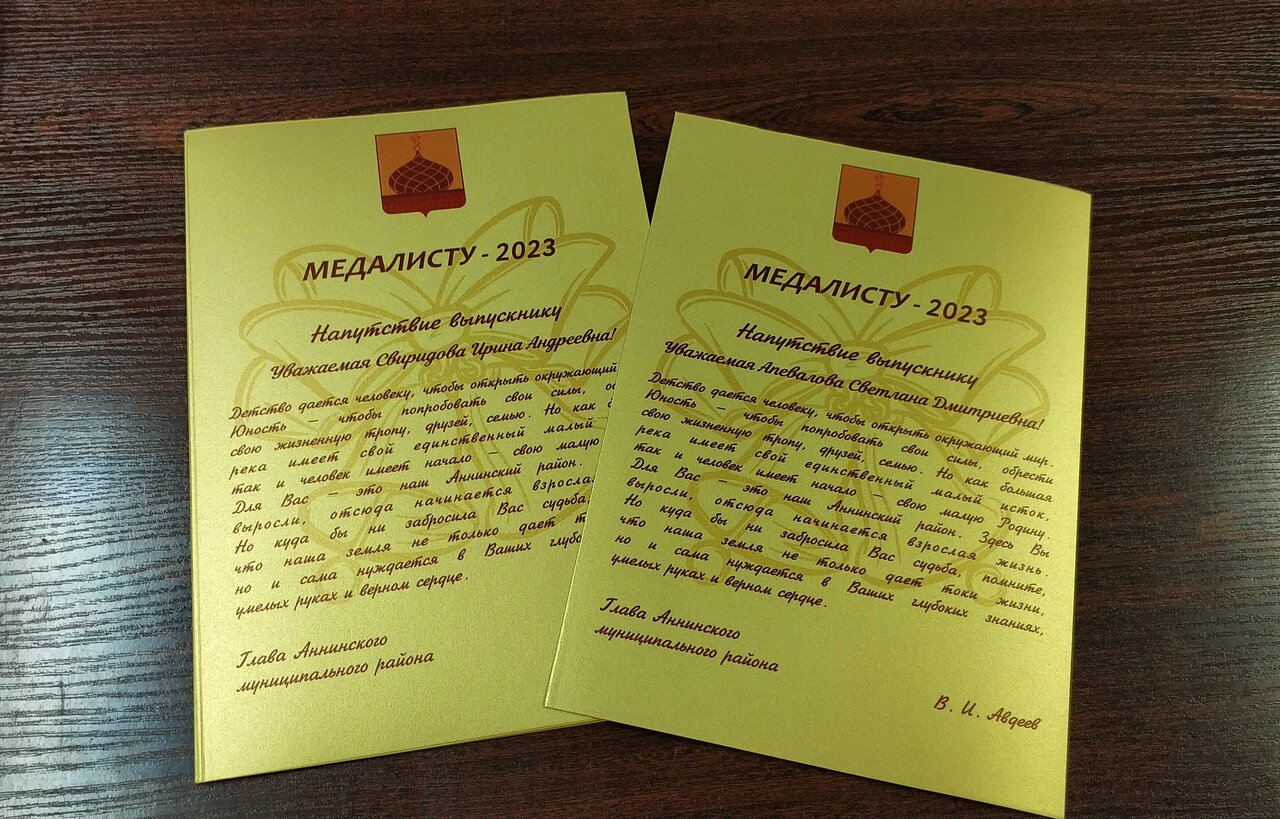 МЕДАЛИСТУ - 2023
Напутствие выпускнику
Уважаемая Свиридова Ирина Андреевна!
Детство дается человеку, чтобы открыть окружающий
Юность – чтобы попробовать свои силы, об
свою жизненную тропу, друзей, семью. Но как б
река имеет свой единственный малый
так и человек имеет начало – свою малую
Для Вас – это наш Аннинский район.
выросли, отсюда начинается взросла
Но куда бы ни забросила Вас судьба,
что наша земля не только дает т
но и сама нуждается в Ваших глубо
умелых руках и верном сердце.
Глава Аннинского
муниципального района
МЕДАЛИСТУ - 2023
Напутствие выпускнику
Уважаемая Апевалова Светлана Дмитриевна!
Детство дается человеку, чтобы открыть окружающий мир.
Юность – чтобы попробовать свои силы, обрести
свою жизненную тропу, друзей, семью. Но как большая
река имеет свой единственный малый исток,
так и человек имеет начало – свою малую Родину.
Для Вас – это наш Аннинский район. Здесь Вы
выросли, отсюда начинается взрослая жизнь.
Но куда бы ни забросила Вас судьба, помните,
что наша земля не только дает токи жизни,
но и сама нуждается в Ваших глубоких знаниях,
умелых руках и верном сердце.
Глава Аннинского
муниципального района
В. И. Авдеев